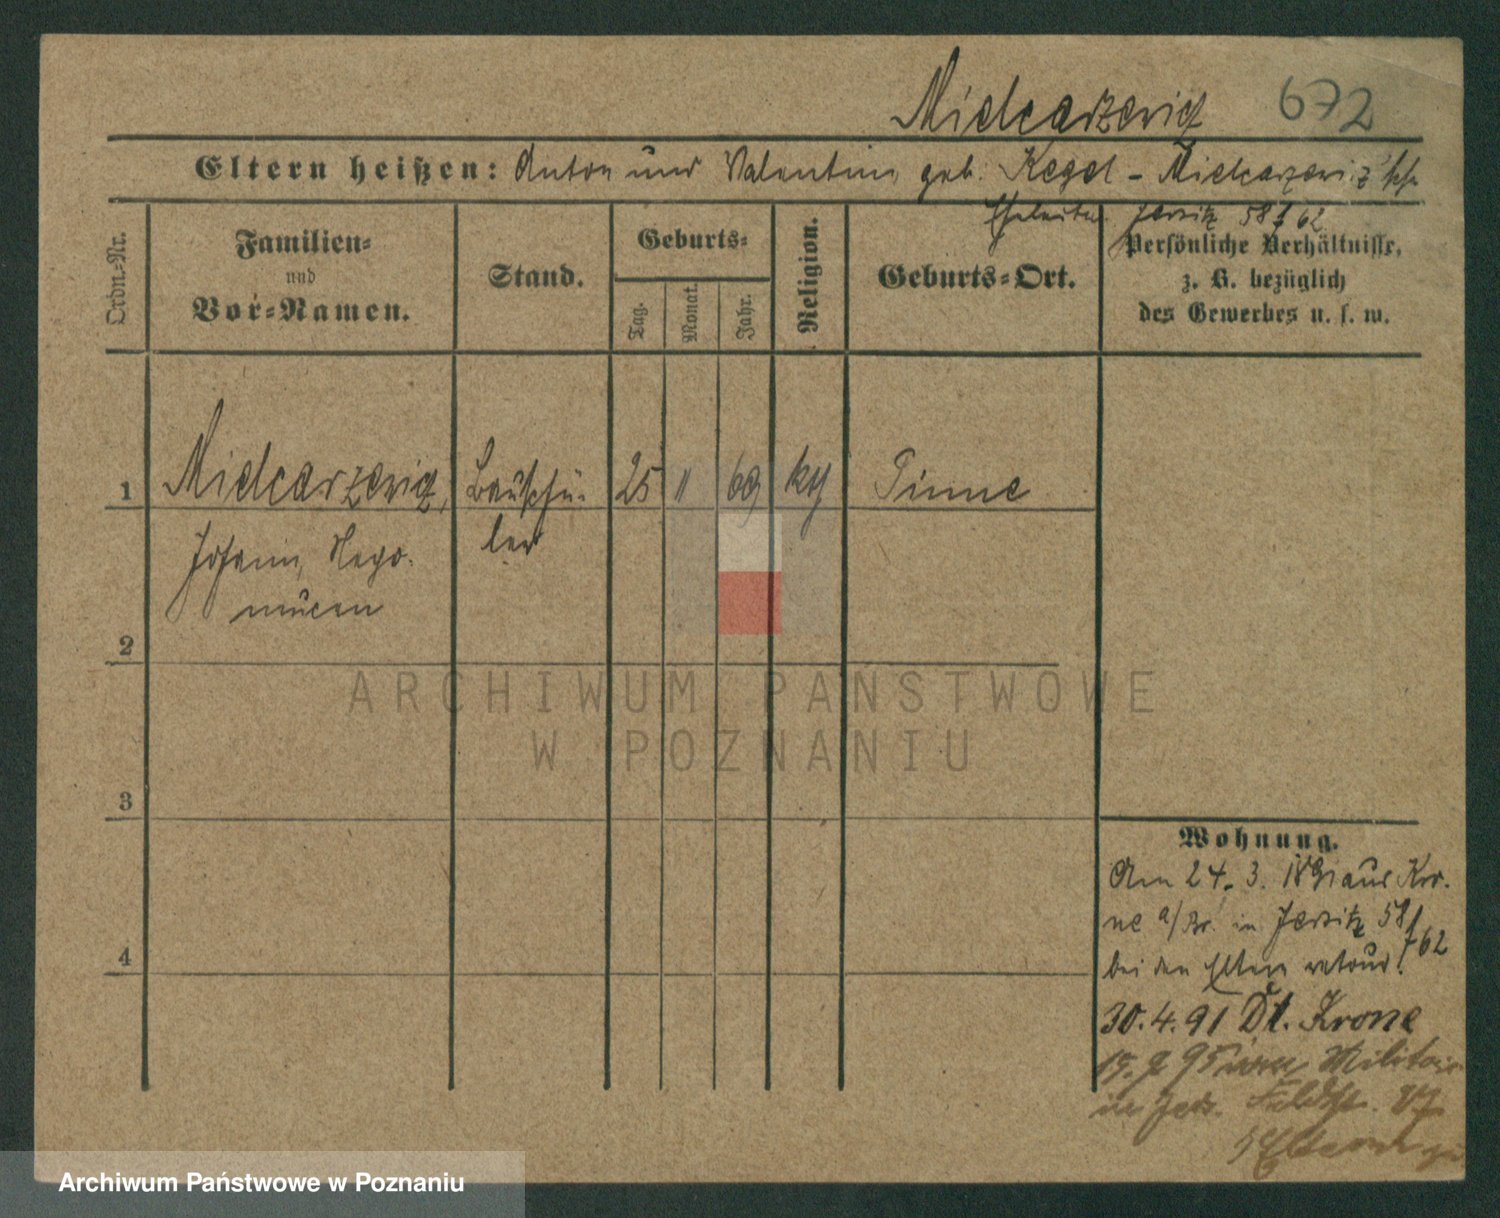 Mielcarzewicz 672
Eltern heißen: Anton und Valentine geb. Kegel - Mielcarzewicz'sche
Eheleute. Jersitz 58 f 62
Ordn.=Nr.
Familien=
und
Vor=Namen.
Stand.
Geburts=
Tag.
Monat.
Jahr.
Religion.
Geburts=Ort.
Persönliche Verhältnisse,
z. B. bezüglich
des Gewerbes u. s. w.
1 Mielcarzewicz, Bauschü- 25 4 69 kth Pinne
Johann, Nepo- ler
mucen
2
3
4
Wohnung.
Am 24. 3. 1891 aus Kro-
ne a/Br. in Jersitz 58 f 62
bei den Eltern retour.
30.4.91 Dt. Krone
15. 9 95 vom Militair
in Jers.
Eltern
ARCHIWUM PAŃSTWOWE
W POZNANIU
Archiwum Państwowe w Poznaniu